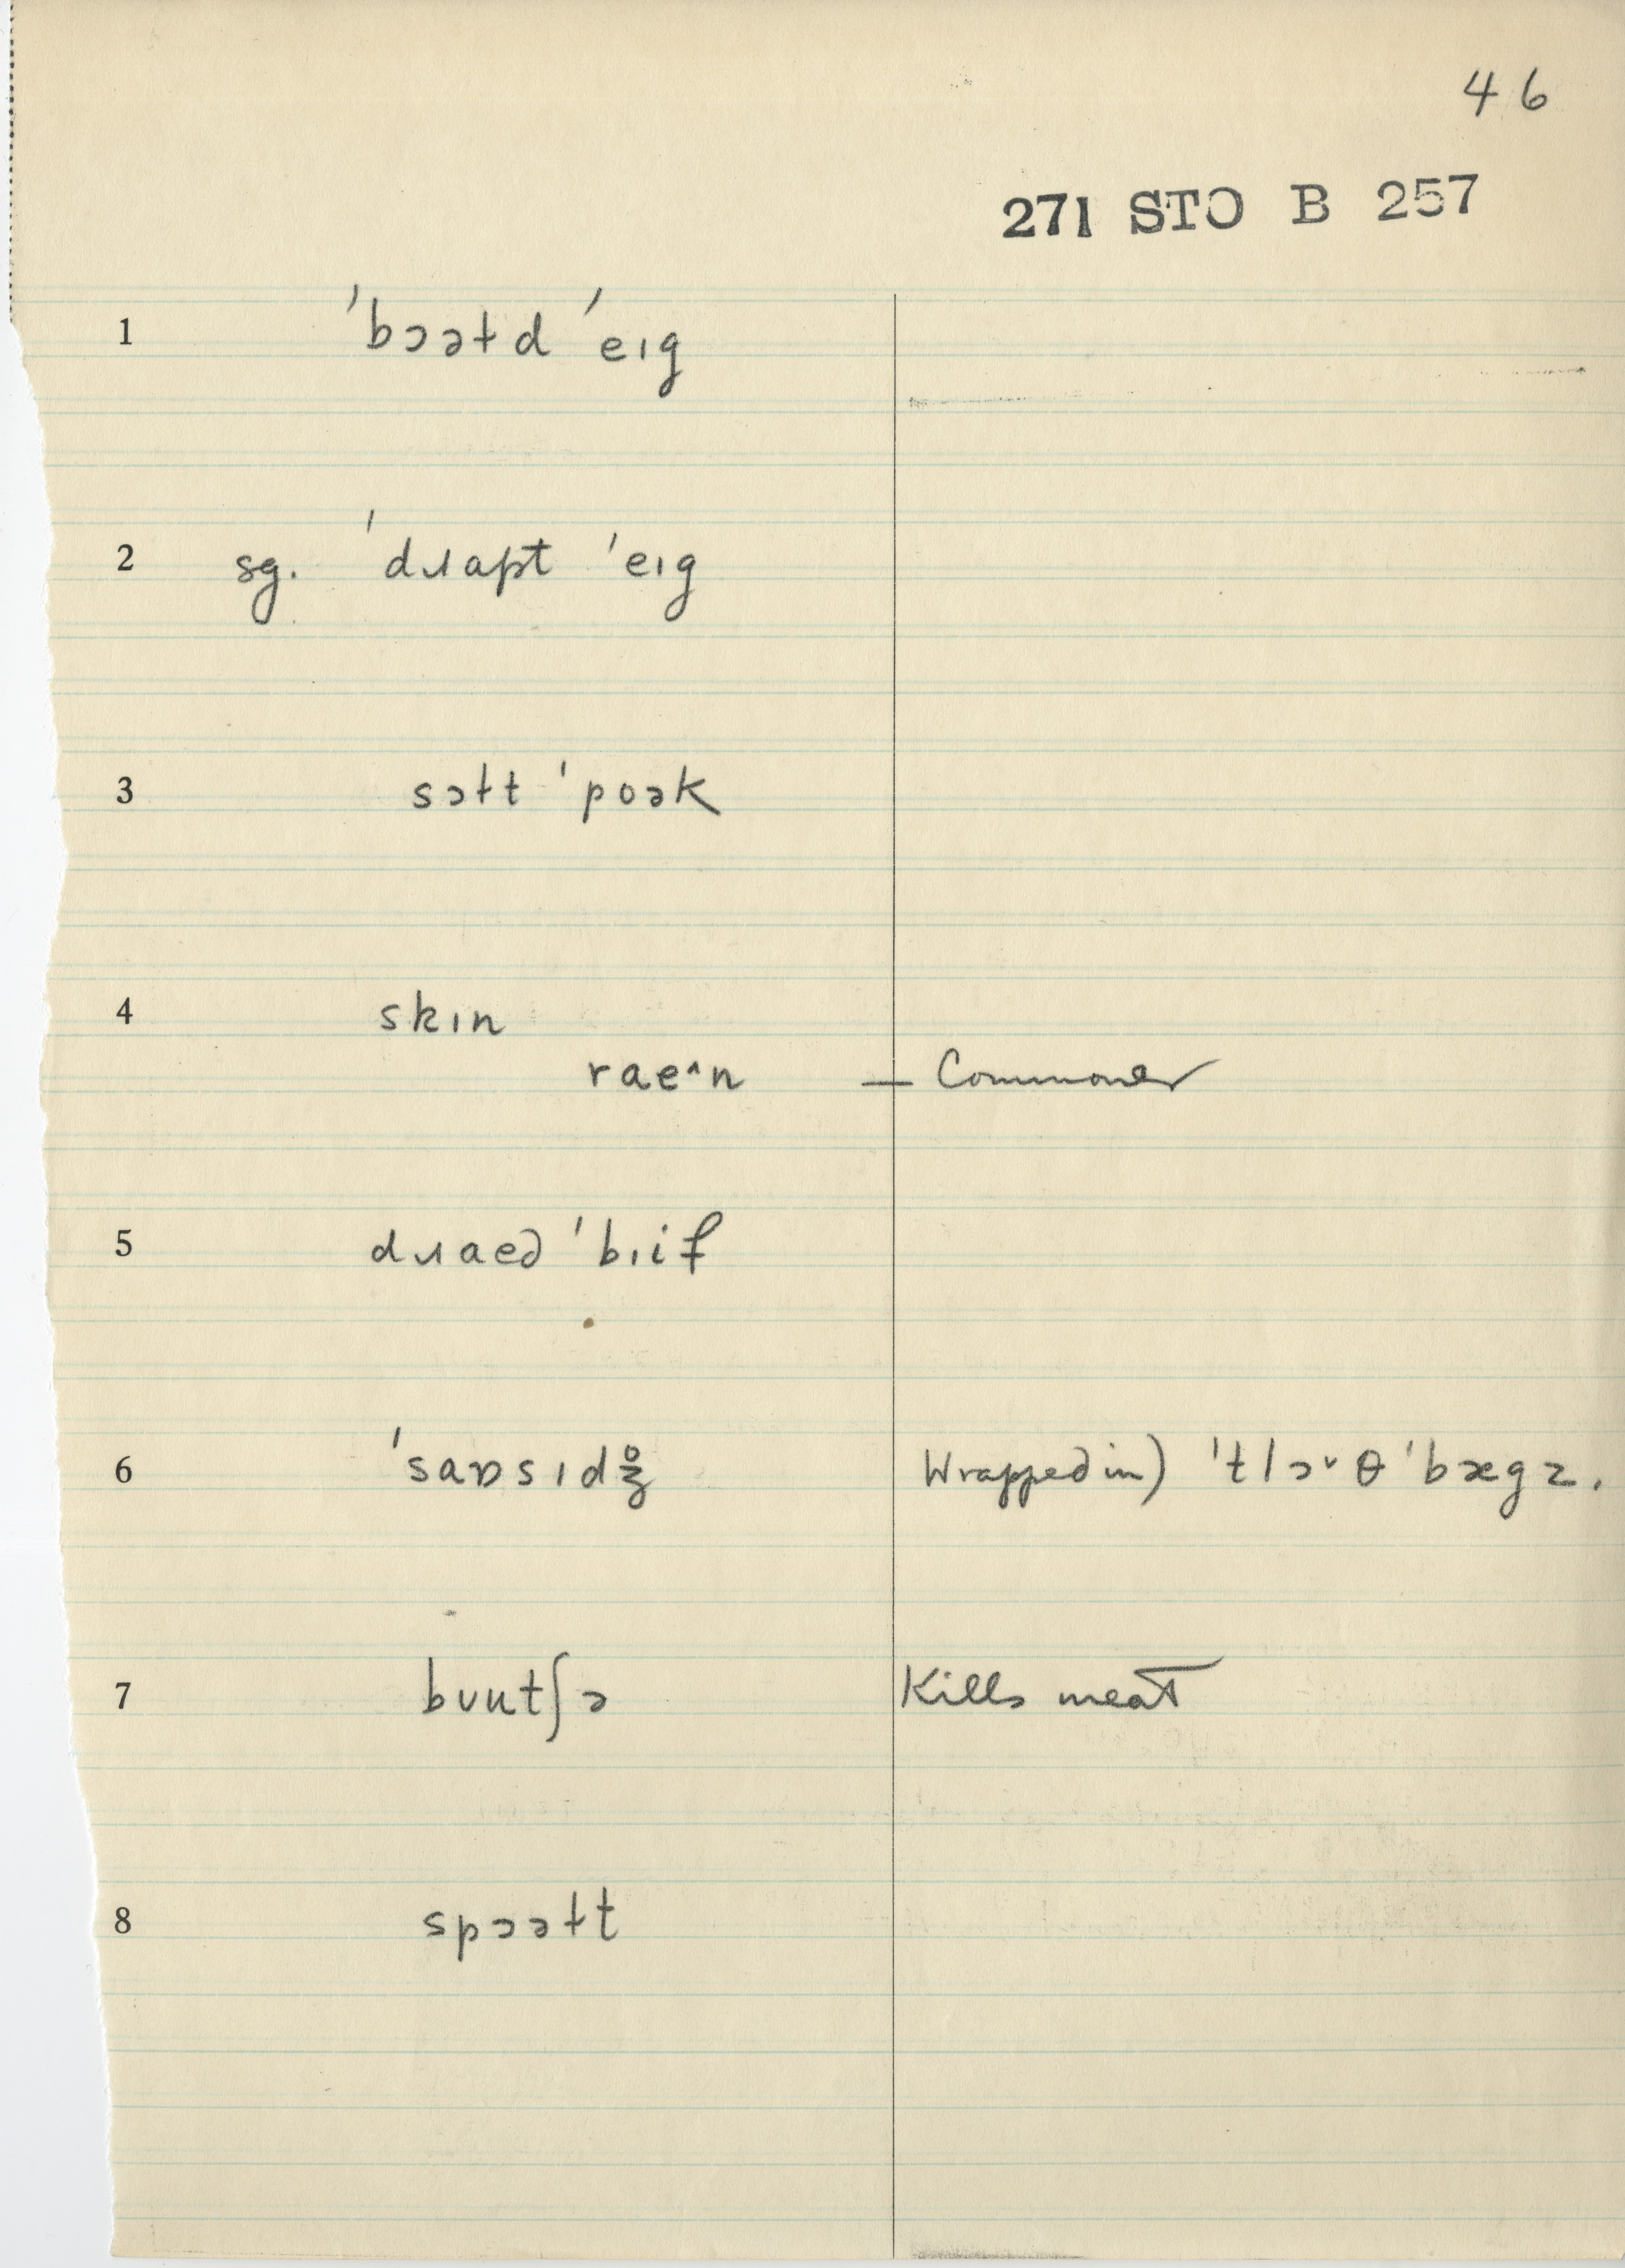 46
271 STO B 257
1 ˈbɔəɫd ˈeɪg
2 sg. ˈdɹapt ˈeɪg
3 sɔɫt ˈpoək
4 skɪn
raeˆn — Commoner
5 dɹaed ˈbɪif
6 ˈsaɒsɪdʒ̊ Wrapped in) ˈklɔˇθ ˈbægz.
7 bʊutʃə Kills meat
8 spɔəɫt